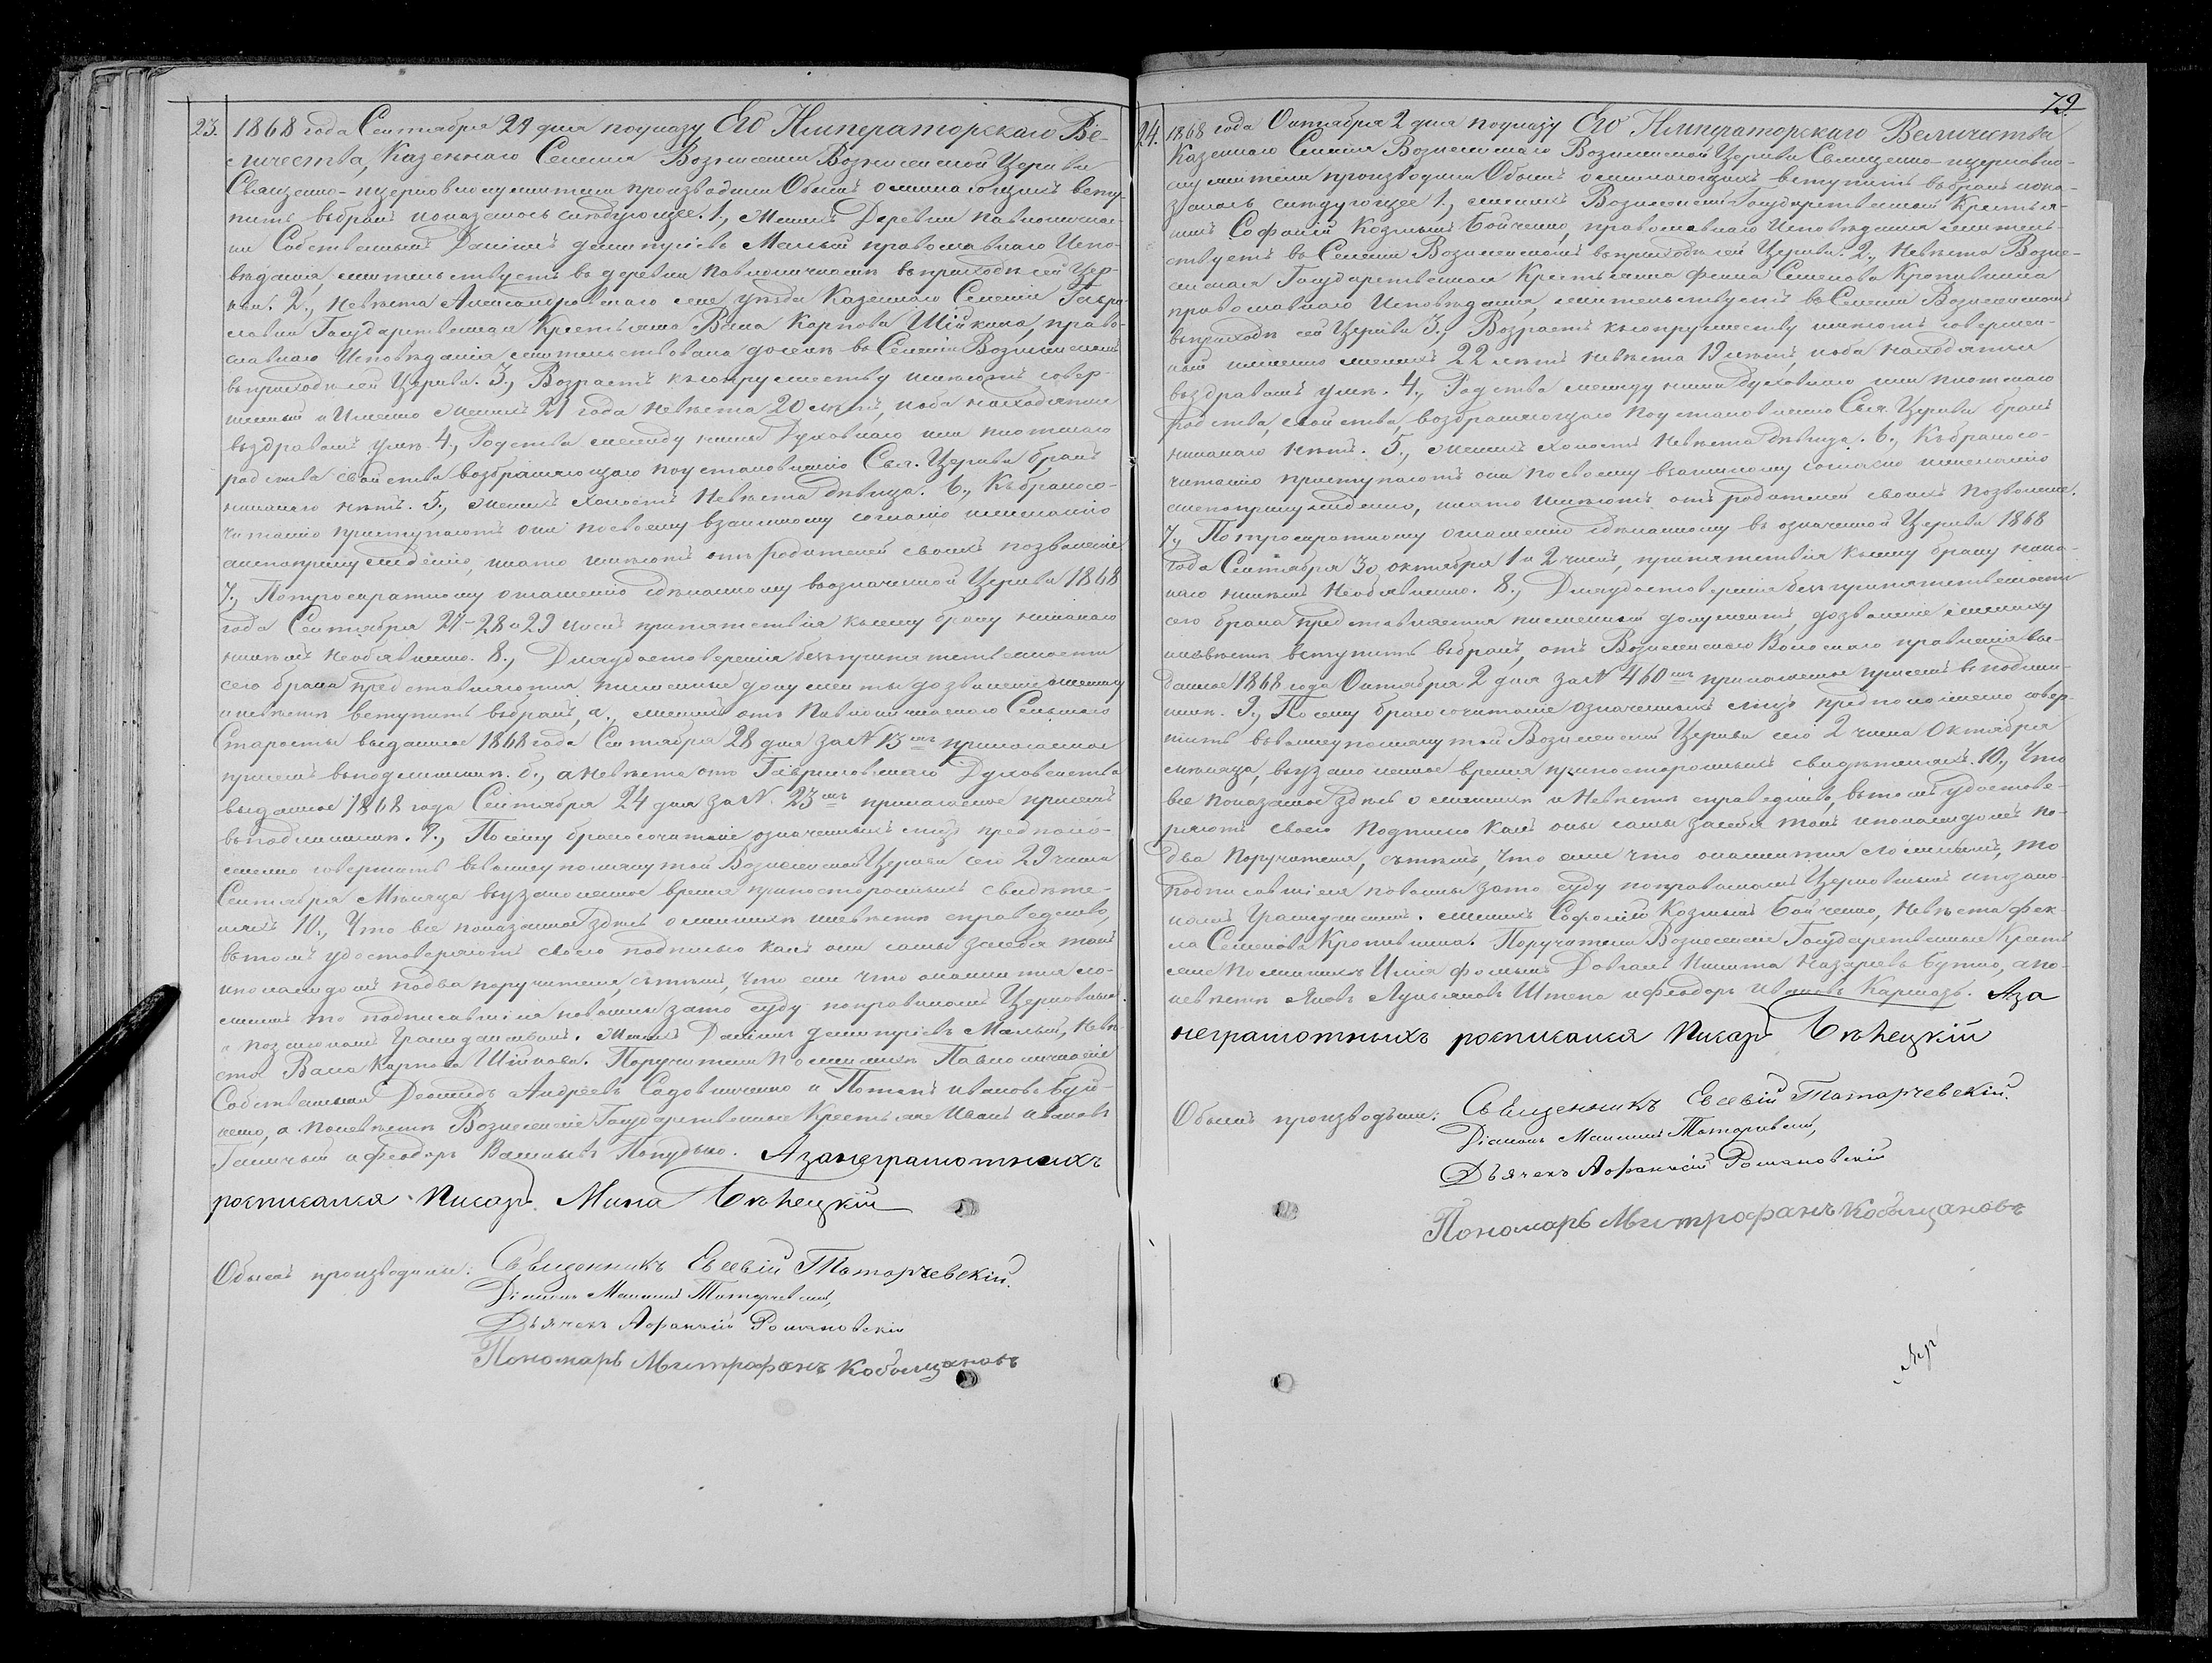 23. 1868 года Сентября 29 дня по указу Его Императорскаго Ве-
личества, Казеннаго Селенія Вознесенки Вознесенской Церкви
Священно-церковнослужители производили Обыскъ о желающихъ всту-
пить въ бракъ и оказалось следующее. 1., Женихъ Деревни Павлопличас-
ки Собственникъ Даніилъ Малый православнаго Испо-
вѣданія, жительствуетъ въ деревни въ приходѣ сей Цер-
кви. 2., Невѣста Александровскаго уѣзда Казеннаго Селенія Гаври-
ловки Государственная Крестьянка Васса Карпова Шійкина, право-
славнаго Исповѣданія жительствовала доселѣ въ Селеніи Вознесенскомъ
въ приходѣ сей Церкви. 3., Возрастъ къ супружеству имѣютъ совер-
шенный а Именно Женихъ 21 года Невѣста 20 лѣтъ, и оба находятся
въ здравомъ умѣ. 4., Родства между ними Духовнаго или плотскаго
родства свойства возбраняющаго по установленію Свят. Церкви бракъ
никакого нѣтъ. 5., Женихъ холостъ Невѣста дѣвица. 6., Къ бракосо-
читанію приступаютъ они по своему взаимному согласію и желанію
а не по принужденію, и на то имѣютъ отъ Родителей своихъ позволеніе
7., По троекратному оглашенію сдѣланному въ означенной Церкви 1868
года Сентября 27-28 и 29 чиселъ препятствія къ сему браку никакого
никѣмъ необъявлено. 8., Для удостоверенія безпрепятственности
сего брака представляются письменные документы дозволеніе жениху
и невѣстѣ вступить въ бракъ, а., жениху отъ Сельскаго
Старосты выданное 1868 года Сентября 28 дня за № 13мъ прилагаемое
при семъ въ подлинникѣ. б., а Невѣсте отъ Гавриловскаго Духовенства
выданное 1868 года Сентября 24 дня за №. 23мъ прилагаемое при семъ
въ подлинникѣ. 9., По сему бракосочитаніе означенныхъ лицъ предполо-
жено совершить въ вышеупомянутой Вознесенской Церкви сего 29 числа
Сентября Мѣсяца въ узаконенное время при постороннихъ свидѣте-
ляхъ 10., Что все показанное здѣсь о женихѣ и невѣстѣ справедливо,
въ томъ удостоверяютъ своею подписью какъ они сами за себя такъ
и по каждомъ по два поручителя, съ тѣмъ, что если что окажется ло-
жнымъ то подписавшіеся повинны за то суду по правиламъ Церковнымъ
и по законамъ Гражданскимъ. Женихъ Даніилъ Малый, Невѣ-
ста Васса Карпова Шійкова. Поручители По женихѣ
Собственники Демидъ Андреевъ Садовниченко и Потапъ Ивановъ Буй-
ненко, а по невѣстѣ Вознесенскіе Государственные Крестьяне Иванъ Ивановъ
Галичый и Феодоръ Васильевъ Попудько. А за неграмотныхъ
росписался Писарь Мина Бѣнецкій
Обыскъ производили: Священникъ Евсевій Татарчевскій.
Діаконъ Татарчевскій,
Дьячекъ Афанасій Романовскій
Пономарь Митрофанъ Кобыщановъ
79.
24. 1868 года Октября 2 дня по указу Его Императорскаго Величества
Казеннаго Селенія Вознесенскаго Вознесенской Церкви Священно-церковно-
служители производили Обыскъ о желающихъ вступить въ бракъ и ока-
залось следующее 1., женихъ Вознесенскій Государственный Крестья-
нинъ Софоній Козминъ Бойченко, православнаго Исповѣданія житель-
ствуетъ въ Селеніи Вознесенскомъ въ приходѣ сей Церкви. 2., Невѣста Возне-
сенская Государственная Крестьянка Фекла Семенова Кропивкина
православнаго Исповѣданія, жительствуетъ въ Селеніи Вознесенскомъ
въ приходѣ сей Церкви 3., Возрастъ къ супружеству имѣютъ совершен-
ный именно женихъ 22 лѣтъ Невѣста 19 лѣтъ, и оба находятся
въ здравомъ умѣ. 4., Родства между ними духовнаго или плотскаго
родства, свойства, возбраняющаго по установленію Свят. Церкви бракъ
никакого нѣтъ. 5., Женихъ холостъ Невѣста дѣвица. 6., Къ бракосо-
читанію приступаютъ они по своему взаимному согласію и желанію
а не по принужденію, и на то имѣютъ отъ родителей своихъ позволеніе.
7., По троекратному оглашенію сдѣланному въ означенной Церкви 1868
года Сентября 30 октября 1 и 2 чиселъ, препятствія къ сему браку ника-
кого никѣмъ необъявлено. 8., Для удостоверенія безпрепятственности
сего брака представляется письменный документъ, дозволеніе жениху
и невѣстѣ вступить въ бракъ, отъ Вознесенскаго Волоснаго правленія вы-
данное 1868 года Октября 2 дня за № 460мъ приложенное при семъ въ подлин-
никѣ. 9., По сему бракосочитаніе означенныхъ лицъ предположено совер-
шить въ вышеупомянутой Вознесенской Церкви сего 2 числа Октября
мѣсяца, въ узаконенное время при постороннихъ свидѣтеляхъ. 10., Что
все показанное здѣсь о женихѣ и Невѣстѣ справедливо, въ томъ удостове-
ряютъ своею подписью какъ они сами за себя такъ и по каждомъ по
два Поручителя, съ тѣмъ, что если что окажится ложнымъ, то
подписавшіеся повинны за то суду по правиламъ Церковнымъ и по зако-
намъ Гражданскимъ. Женихъ Софоній Козминъ Бойченко, Невѣста Фек-
ла Семенова Кропивкина. Поручители Вознесенскіе Государственные Кресть-
яне По женихѣ Илія Фоминъ Довгаль Никита Назаревъ Бутко, а по
невѣстѣ Яковъ Лукьяновъ Штепа и Феодоръ Ивановъ Кармазь. А за
неграмотныхъ росписался Писарь Бѣнецкій
Обыскъ производили: Священникъ Евсевій Татарчевскій.
Діаконъ Татарчевскій,
Дьячекъ Афанасій Романовскій
Пономарь Митрофанъ Кобыщановъ